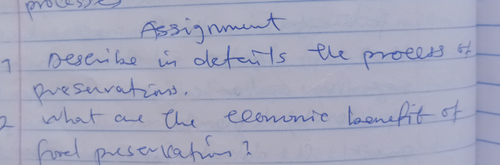 processes
Assignment
1 Describe in details the process of
preservations.
2 What are the economic benefit of
food preservation?